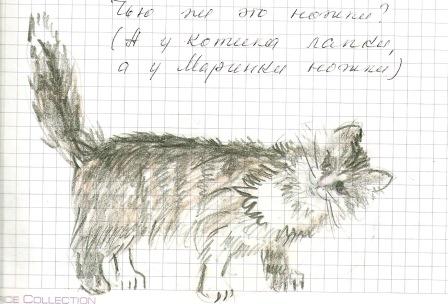 Чью же это ножки?
(А у котика лапки,
а у Маринки ножки)
CE COLLECTION